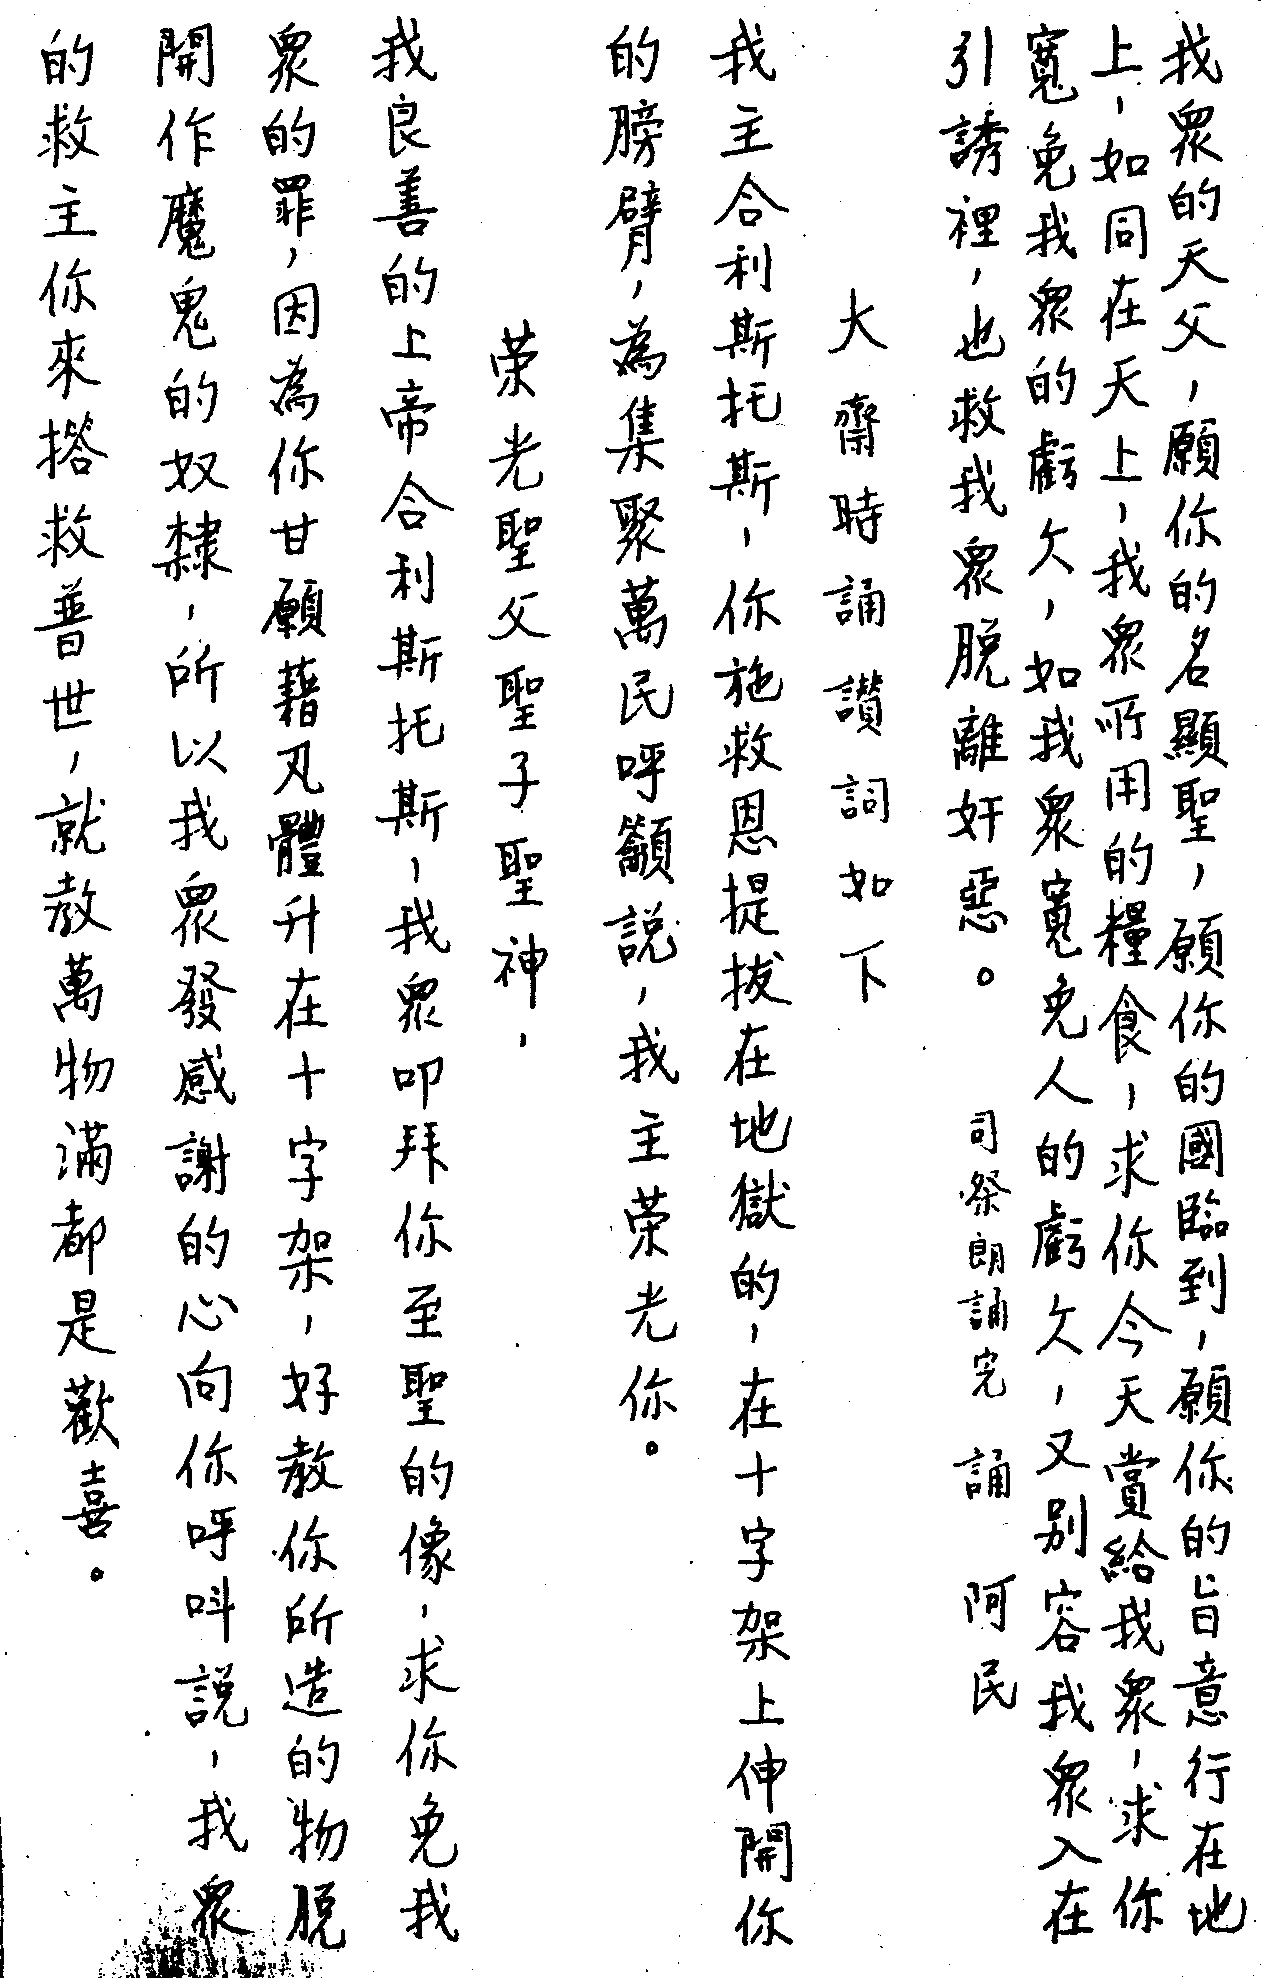 我眾的天父，願你的名顯聖，願你的國臨到，願你的旨意行在地
上，如同在天上，我眾所用的糧食，求你今天賞給我眾，求你
寬免我眾的虧欠，如我眾寬免人的虧欠，又別容我眾入在
引誘裡，也救我眾脫離奸惡。 司祭朗誦完 誦 阿民
大齋時誦讚詞如下
我主合利斯托斯，你施救恩提拔在地獄的，在十字架上伸開你
的膀臂，為集聚萬民呼籲説，我主荣光你。
荣光聖父聖子聖神，
我良善的上帝合利斯托斯，我眾叩拜你至聖的像，求你免我
眾的罪，因為你甘願藉肉體升在十字架，好教你所造的物脫
開作魔鬼的奴隸，所以我眾發感謝的心向你呼呌説，我眾
的救主你來搭救普世，就教萬物滿都是歡喜。